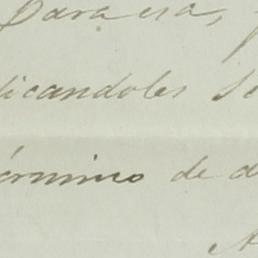 para esa,
icandoles se
érmino de d